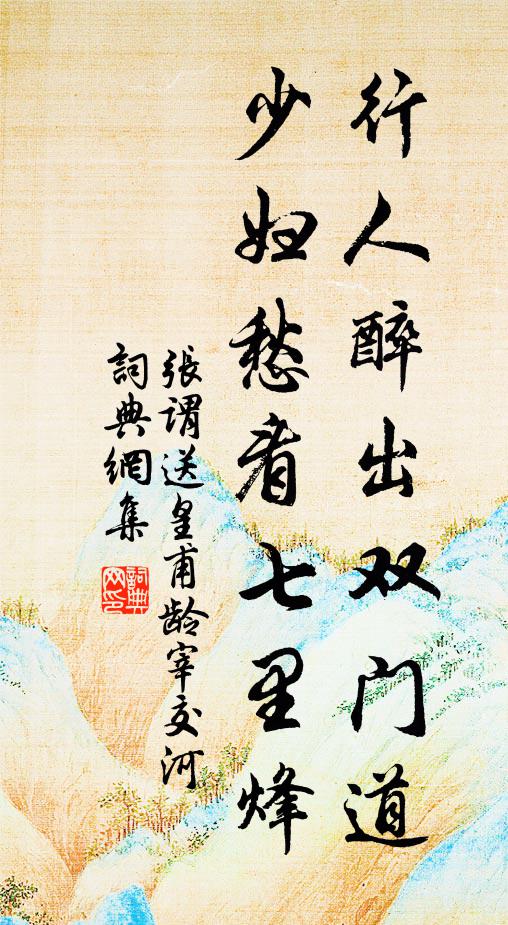 行人醉出双门道
少妇愁看七里烽
張謂送皇甫龄宰交河
詞典網集
詞典
网印